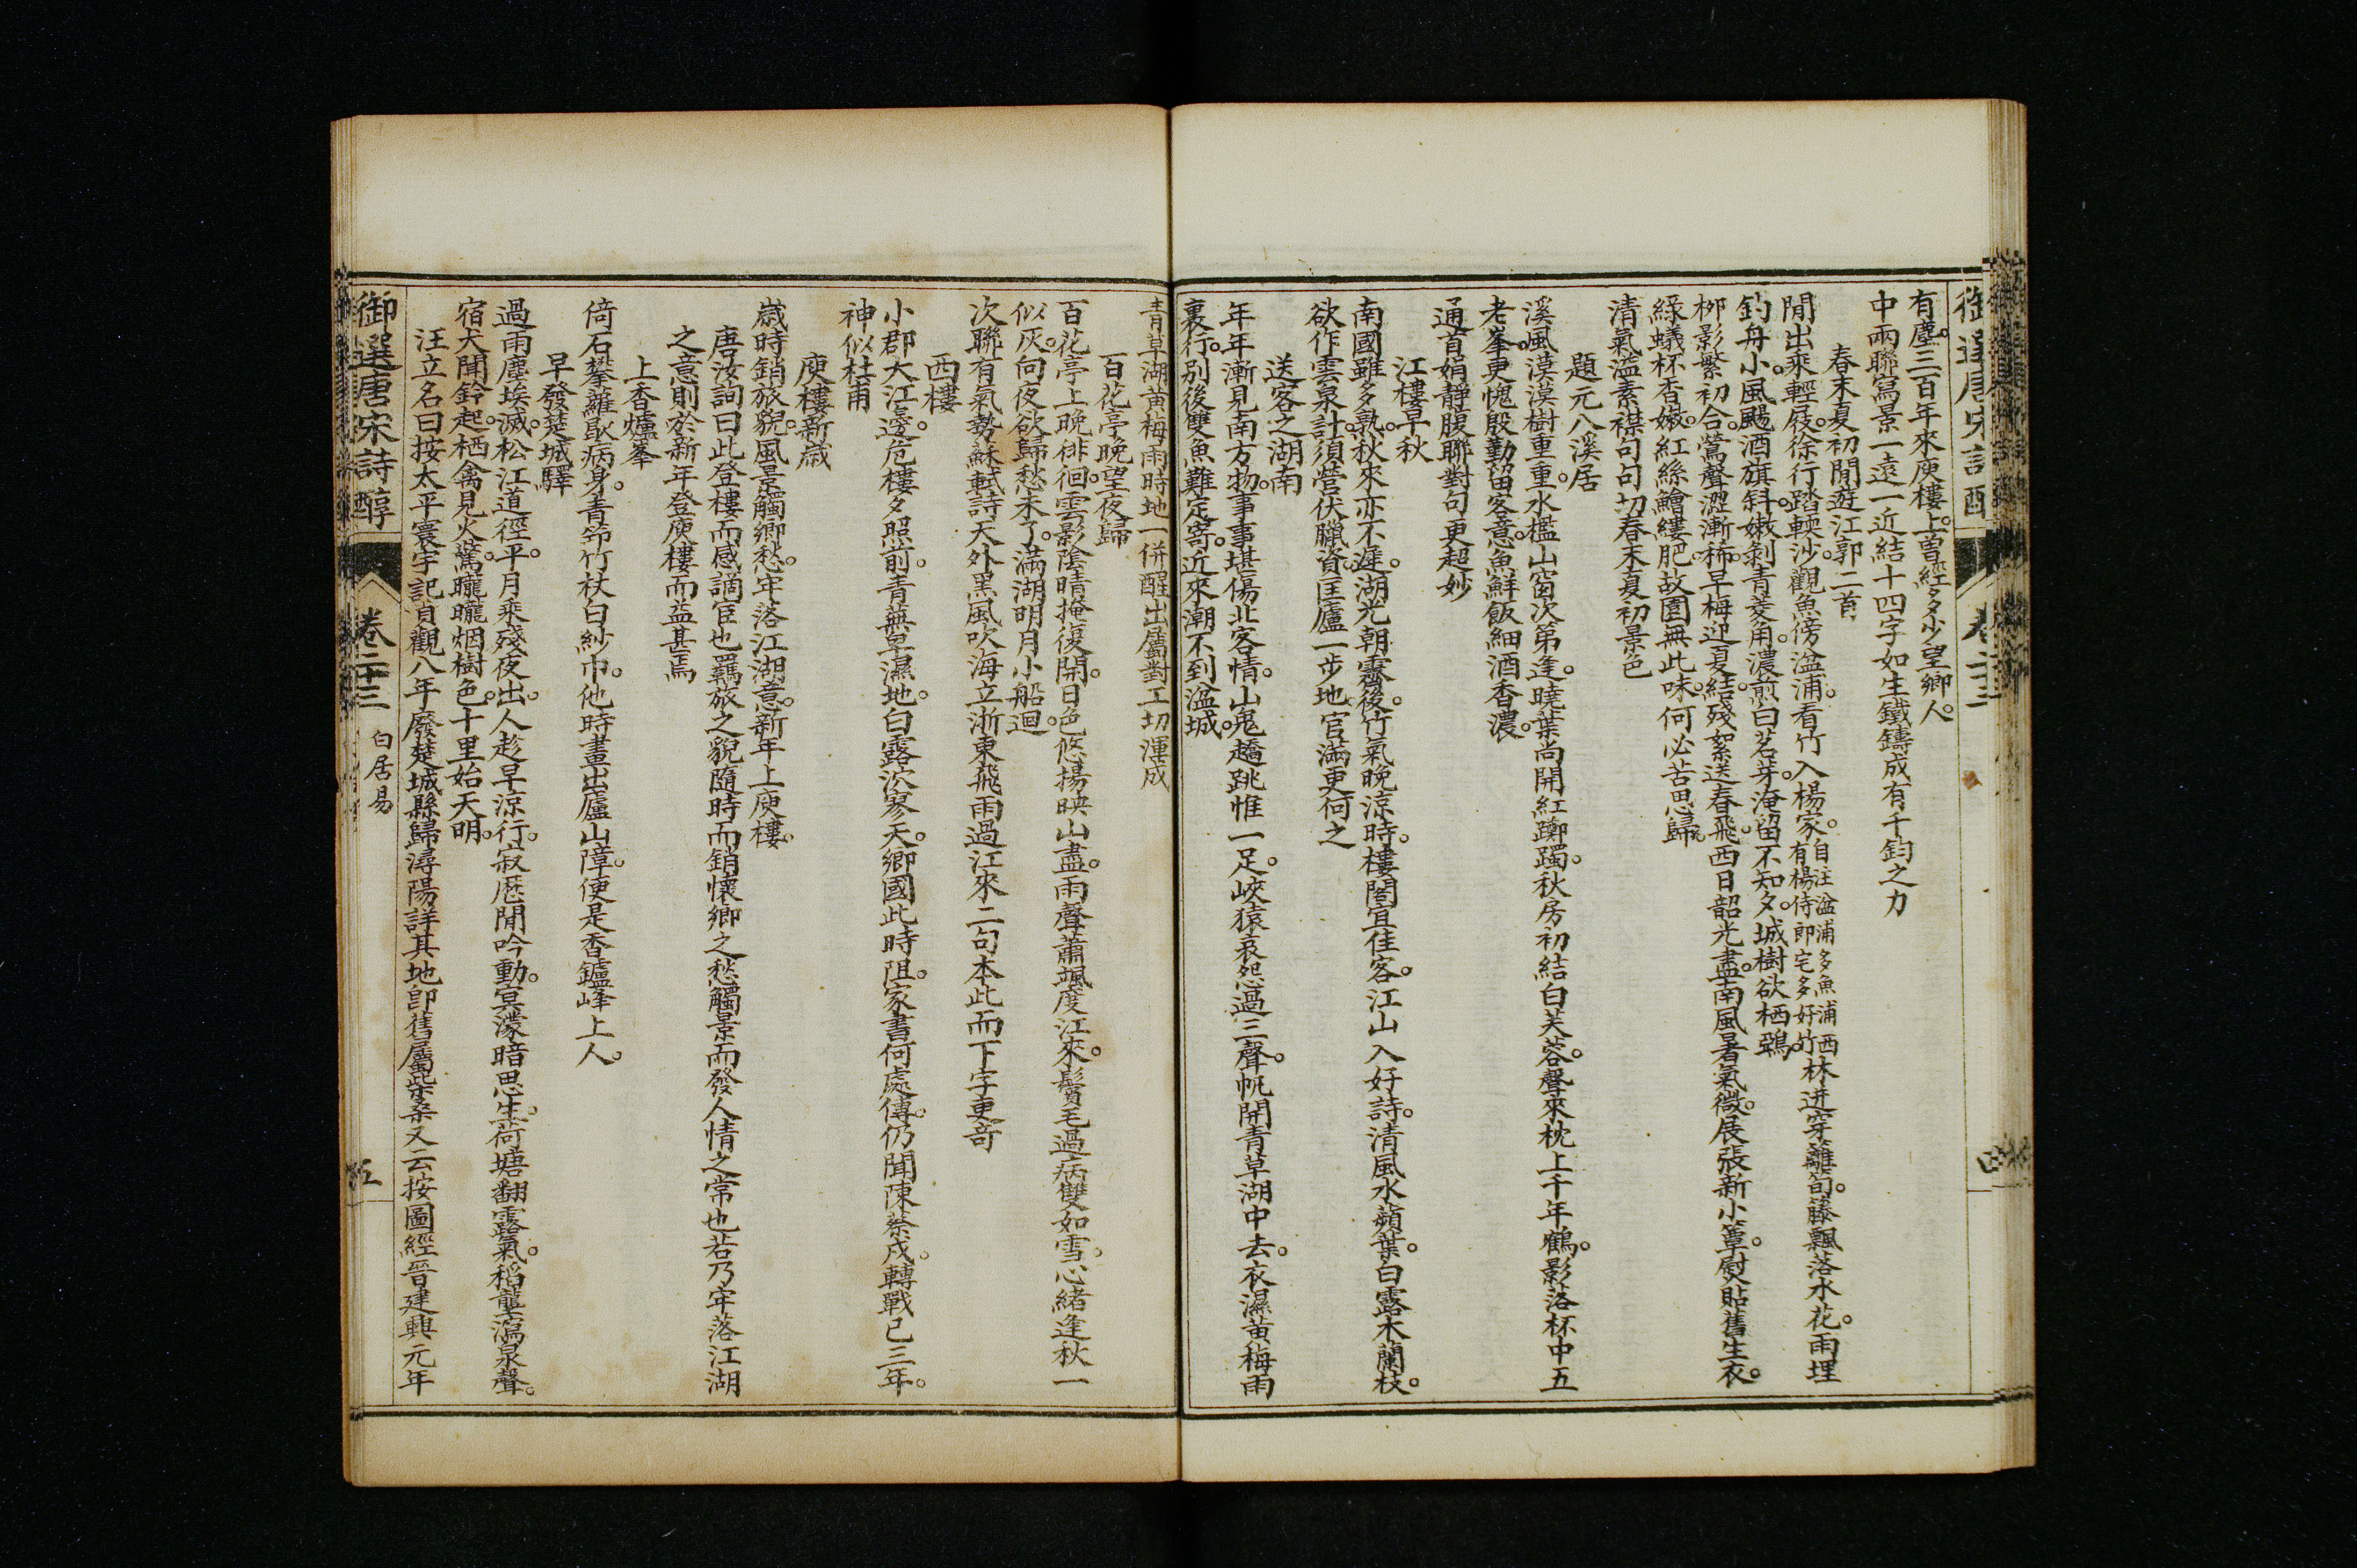 御選唐宋詩醇 卷二十三 四
有塵。三百年來庾樓上。曾經多少望鄉人。
中兩聯寫景一遠一近結十四字如生鐵鑄成有千鈞之力
春末夏初閒遊江郭二首
閒出乘輕屐。徐行踏輭沙。觀魚傍湓浦。看竹入楊家。自注湓浦多魚浦西有楊侍郎宅多好竹林迸穿籬筍。籐飄落水花。雨埋
釣舟小。風颺酒旗斜。嫩剝青菱角。濃煎白茗芽。淹留不知夕。城樹欲栖鴉。
柳影繁初合。鶯聲澀漸稀。早梅迎夏結。殘絮送春飛。西日韶光盡。南風暑氣微。展張新小簟。熨貼舊生衣。
綠蟻杯香嫩。紅絲鱠縷肥。故園無此味。何必苦思歸。
清氣溢素襟句句切春末夏初景色
題元八溪居
溪風漠漠樹重重。水檻山窗次第逢。曉葉尚開紅躑躅。秋房初結白芙蓉。聲來枕上千年鶴。影落杯中五
老峯。更愧殷勤留客意。魚鮮飯細酒香濃。
通首娟靜腹聯對句更超妙
江樓早秋
南國雖多熟。秋來亦不遲。湖光朝霽後。竹氣晚涼時。樓閣宜佳客。江山入好詩。清風水蘋葉。白露木蘭枝。
欲作雲泉計。須營伏臘資。匡廬一步地。官滿更何之
送客之湖南
年年漸見南方物。事事堪傷北客情。山鬼趫跳惟一足。峽猿哀怨過三聲。帆開青草湖中去。衣濕黃梅雨
裏行。別後雙魚難定寄。近來潮不到湓城。
青草湖黃梅雨時地一併醒出屬對工切渾成
百花亭晚望夜歸
百花亭上晚徘徊。雲影陰晴掩復開。日色悠揚映山盡。雨聲蕭颯度江來。鬢毛過病雙如雪。心緒逢秋一
似灰。向夜欲歸愁未了。滿湖明月小船迴。
次聯有氣勢蘇軾詩天外黑風吹海立浙東飛雨過江來二句本此而下字更奇
西樓
小郡大江邊。危樓夕照前。青蕪卑濕地。白露泬寥天。鄉國此時阻。家書何處傳。仍聞陳蔡戍。轉戰已三年。
神似杜甫
庾樓新歲
歲時銷旅貌。風景觸鄉愁。牢落江湖意。新年上庾樓。
唐汝詢曰此登樓而感謫宦也羈旅之貌隨時而銷懷鄉之愁觸景而發人情之常也若乃牢落江湖
之意則於新年登庾樓而益甚焉
上香爐峯
倚石攀蘿歇病身。青筇竹杖白紗巾。他時畫出廬山障。便是香鑪峰上人。
早發楚城驛
過雨塵埃滅。松江道徑平。月乘殘夜出。人趁早涼行。寂歷閒吟動。冥濛暗思生。荷塘翻露氣。稻壟瀉泉聲。
宿犬聞鈴起。栖禽見火驚。曨曨烟樹色。十里始天明。
汪立名曰按太平寰宇記貞觀八年廢楚城縣歸潯陽詳其地卽舊屬柴桑又云按圖經晉建興元年
御選唐宋詩醇 卷二十三 白居易 五